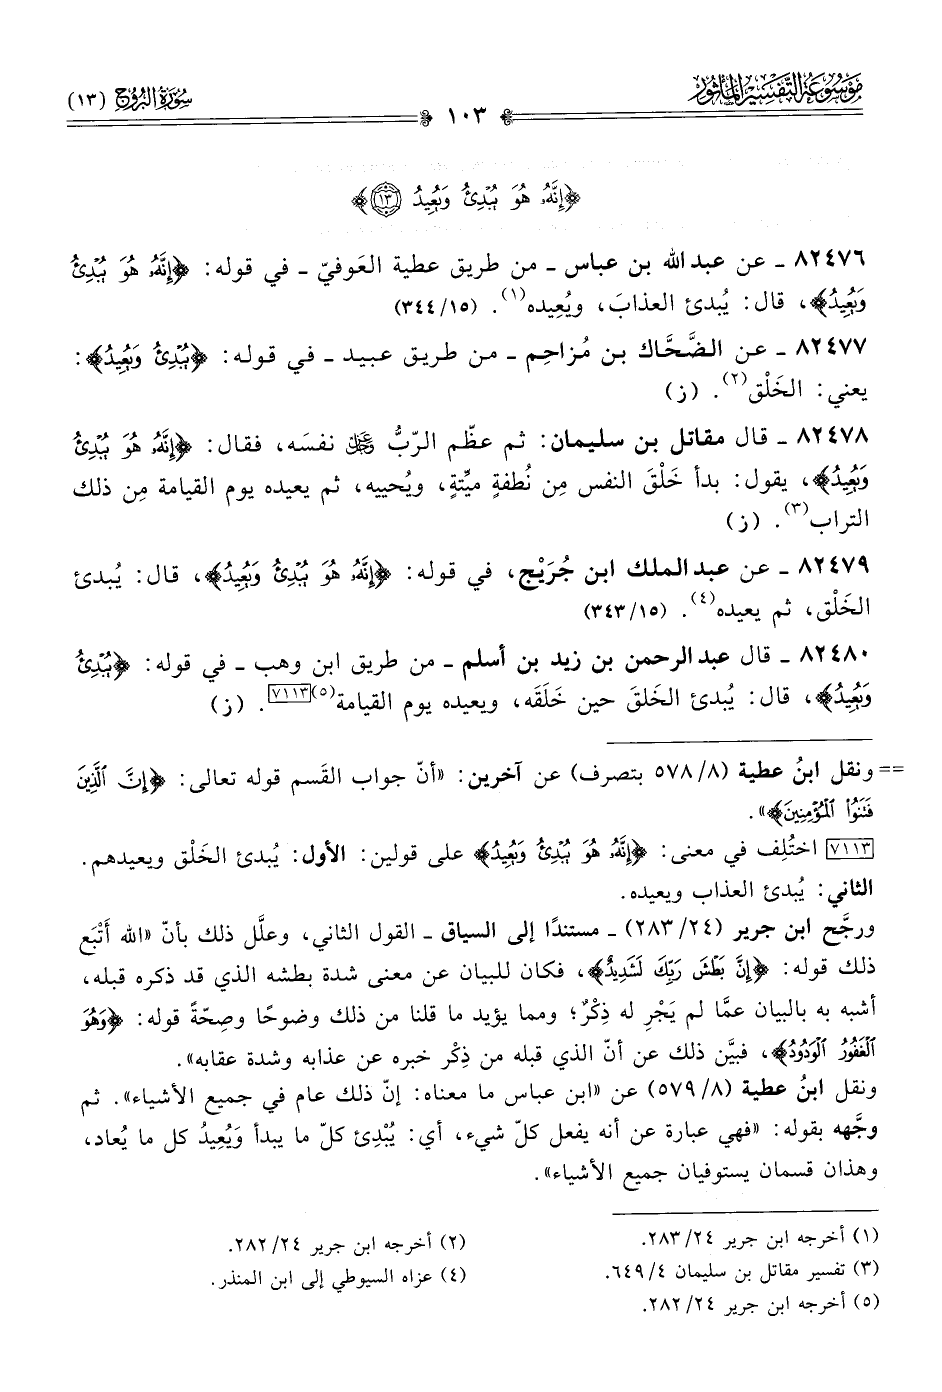 موسوعة التفسير المأثور
١٠٣
سورة البروج (١٣)
﴿إِنَّهُۥ هُوَ يُبْدِئُ وَيُعِيدُ ١٣﴾
٨٢٤٧٦ ـ عن عبد الله بن عباس ـ من طريق عطية العَوفيّ ـ في قوله: ﴿إِنَّهُۥ هُوَ يُبْدِئُ
وَيُعِيدُ﴾، قال: يُبدئ العذابَ، ويُعِيده(١). (١٥/٣٤٤)
٨٢٤٧٧ ـ عن الضَّحَّاك بن مُزاحِم ـ من طريق عبيد ـ في قوله: ﴿يُبْدِئُ وَيُعِيدُ﴾:
يعني: الخَلْق(٢). (ز)
٨٢٤٧٨ ـ قال مقاتل بن سليمان: ثم عظّم الربُّ عَزَّوَجَلَّ نفسَه، فقال: ﴿إِنَّهُۥ هُوَ يُبْدِئُ
وَيُعِيدُ﴾، يقول: بدأ خَلْقَ النفس مِن نُطفةٍ ميِّتةٍ، ويُحييه، ثم يعيده يوم القيامة مِن ذلك
التراب(٣). (ز)
٨٢٤٧٩ ـ عن عبد الملك ابن جُرَيْج، في قوله: ﴿إِنَّهُۥ هُوَ يُبْدِئُ وَيُعِيدُ﴾، قال: يُبدئ
الخَلْق، ثم يعيده(٤). (١٥/٣٤٣)
٨٢٤٨٠ ـ قال عبد الرحمن بن زيد بن أسلم ـ من طريق ابن وهب ـ في قوله: ﴿يُبْدِئُ
وَيُعِيدُ﴾، قال: يُبدئ الخَلقَ حين خَلَقَه، ويعيده يوم القيامة(٥)[٧١١٣]. (ز)
== ونقل ابنُ عطية (٨/٥٧٨ بتصرف) عن آخرين: «أنّ جواب القَسم قوله تعالى: ﴿إِنَّ ٱلَّذِينَ
فَتَنُوا۟ ٱلْمُؤْمِنِينَ﴾».
[٧١١٣] اختُلِف في معنى: ﴿إِنَّهُۥ هُوَ يُبْدِئُ وَيُعِيدُ﴾ على قولين: الأول: يُبدئ الخَلْق ويعيدهم.
الثاني: يُبدئ العذاب ويعيده.
ورجَّح ابن جرير (٢٤/٢٨٣) ـ مستندًا إلى السياق ـ القول الثاني، وعلَّل ذلك بأنّ «الله أَتْبَع
ذلك قوله: ﴿إِنَّ بَطْشَ رَبِّكَ لَشَدِيدٌ﴾، فكان للبيان عن معنى شدة بطشه الذي قد ذكره قبله،
أشبه به بالبيان عمَّا لم يَجْرِ له ذِكْرٌ؛ ومما يؤيد ما قلنا من ذلك وضوحًا وصِحّةً قوله: ﴿وَهُوَ
ٱلْغَفُورُ ٱلْوَدُودُ﴾، فبيَّن ذلك عن أنّ الذي قبله من ذِكْر خبره عن عذابه وشدة عقابه».
ونقل ابنُ عطية (٨/٥٧٩) عن «ابن عباس ما معناه: إنّ ذلك عام في جميع الأشياء». ثم
وجَّهه بقوله: «فهي عبارة عن أنه يفعل كلّ شيء، أي: يُبْدِئ كلّ ما يبدأ وَيُعِيدُ كل ما يُعاد،
وهذان قسمان يستوفيان جميع الأشياء».
(١) أخرجه ابن جرير ٢٤/٢٨٣.
(٢) أخرجه ابن جرير ٢٤/٢٨٢.
(٣) تفسير مقاتل بن سليمان ٤/٦٤٩.
(٤) عزاه السيوطي إلى ابن المنذر.
(٥) أخرجه ابن جرير ٢٤/٢٨٢.